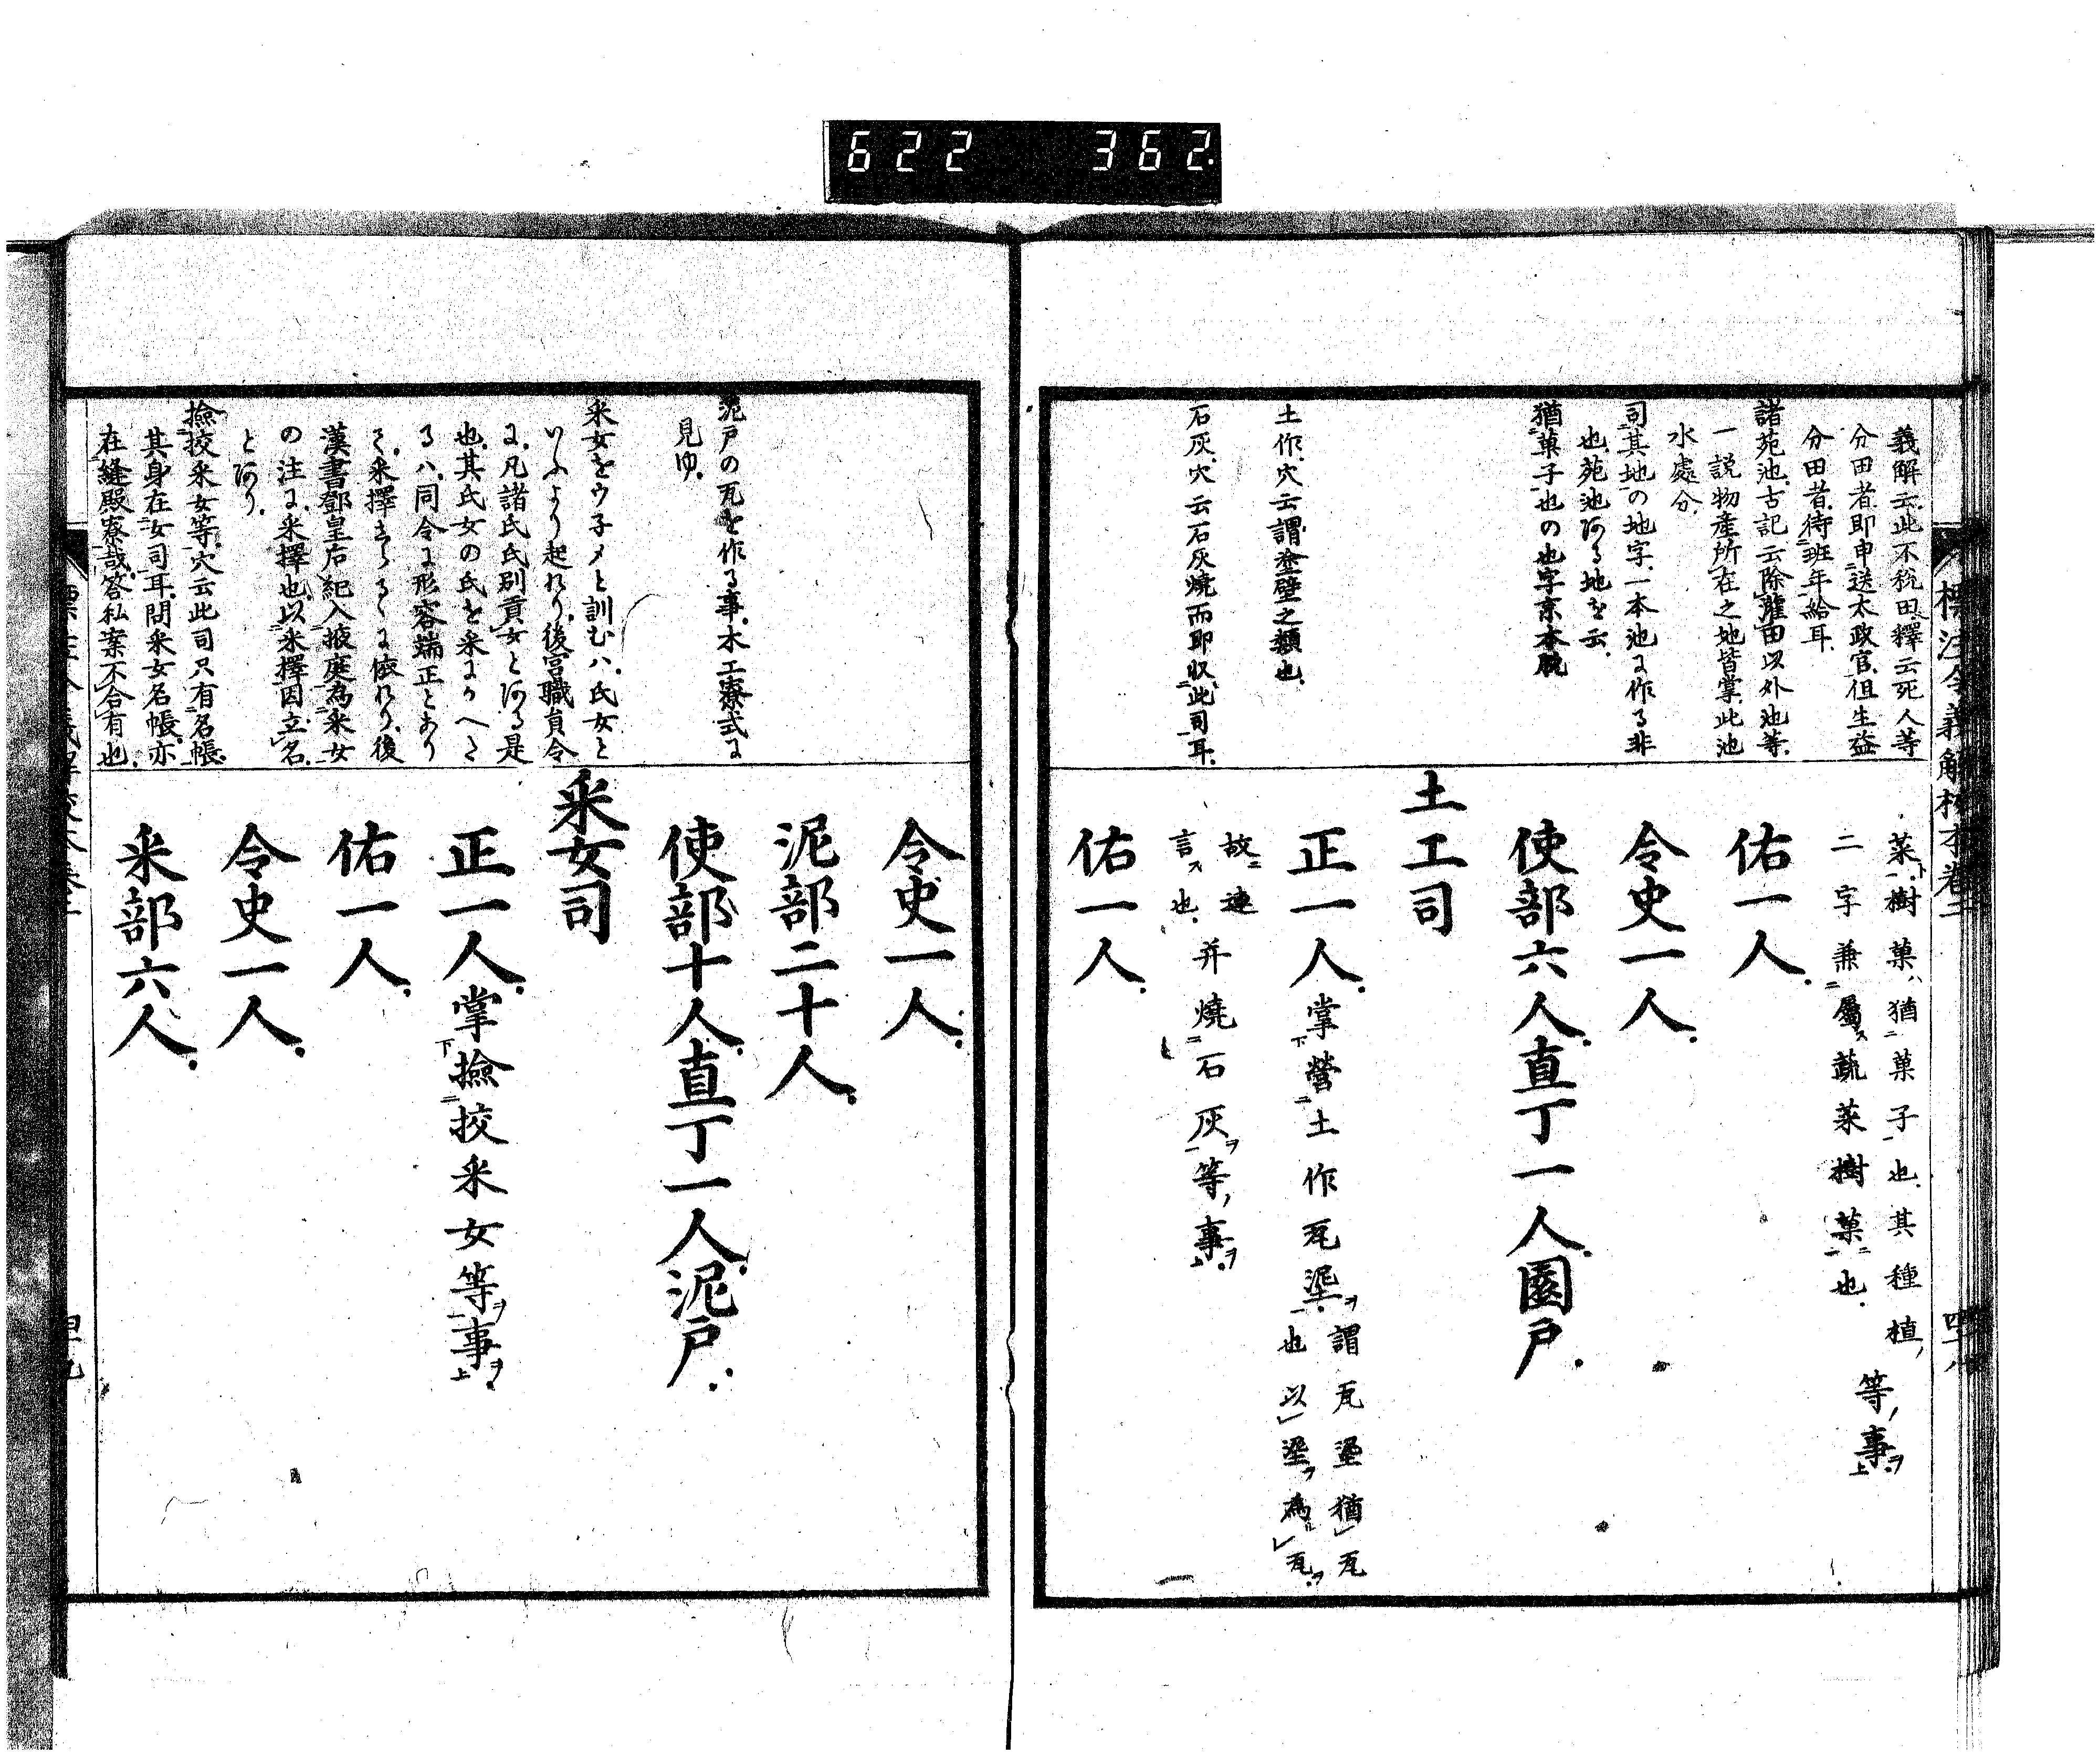 622 362
標注令義解校本卷二
四十八
義解云此不税田釋云死人等
分田者即申送太政官但生益
分田者待班年給耳
諸苑池古記云除陸田以外池等
一説物產所在之地皆掌此池
水處分
司其地の地字一本池に作る非
也苑池ある地を云
猶菓子也の也字京本脱
土作穴云謂塗壁之類也
石灰穴云石灰燒而即収此司耳
菜樹菓猶菓子也其種植
二字兼屬蔬菜樹菓也
等事
佑一人
令史一人
使部六人直丁一人園戸
土工司
正一人掌營土作瓦埿謂瓦埿猶瓦
也以埿為瓦
故連
言也
并燒石灰等事
佑一人
泥戸の瓦を作る事木工寮式に
見ゆ
采女をウ子メと訓むハ氏女と
いふより起れり後宮職員令
に凡諸氏氏別貢女とある是
也其氏女の氏を采にかへた
るハ同令に形容端正とあり
て采擇せらるゝに依れり後
漢書鄧皇后紀入掖庭為采女
の注に采擇也以采擇因立名
とあり
撿挍采女等穴云此司只有名帳
其身在女司耳問采女名帳亦
在縫殿寮哉答私案不合有也
令史一人
泥部二十人
使部十人直丁一人泥戸
采女司
正一人掌撿挍采女等事
佑一人
令史一人
采部六人
四十九